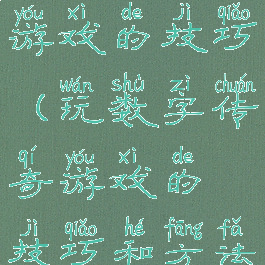 yóu xì de jì qiǎo
游戏的技巧
wán shù zì chuán
(玩数字传
qí yóu xì de
奇游戏的
jì qiǎo hé fāng fǎ
技巧和方法